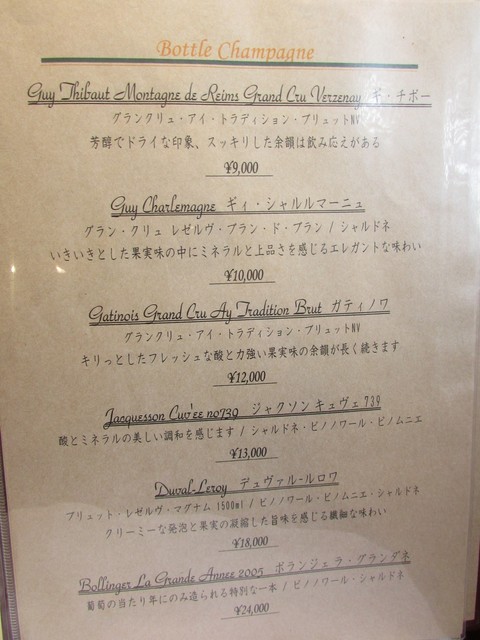 Bottle Champagne
Guy Thibaut Montagne de Reims Grand Cru Verzenay ギ・チボー
グランクリュ・アイ・トラディション・ブリュットNV
芳醇でドライな印象、スッキリした余韻は飲み応えがある
¥9,000
Guy Charlemagne ギィ・シャルルマーニュ
グラン・クリュ レゼルヴ・ブラン・ド・ブラン / シャルドネ
いきいきとした果実味の中にミネラルと上品さを感じるエレガントな味わい
¥10,000
Gatinois Grand Cru Ay Tradition Brut ガティノワ
グランクリュ・アイ・トラディション・ブリュットNV
キリっとしたフレッシュな酸と力強い果実味の余韻が長く続きます
¥12,000
Jacquesson Cuv'ee no739 ジャクソン キュヴェ 739
酸とミネラルの美しい調和を感じます / シャルドネ・ピノノワール・ピノムニエ
¥13,000
Duval-Leroy デュヴァル-ルロワ
ブリュット・レゼルヴ・マグナム 1500ml / ピノノワール・ピノムニエ・シャルドネ
クリーミーな発泡と果実の凝縮した旨味を感じる繊細な味わい
¥18,000
Bollinger La Grande Annee 2005 ボランジェ ラ・グランダネ
葡萄の当たり年にのみ造られる特別な一本 / ピノノワール・シャルドネ
¥24,000